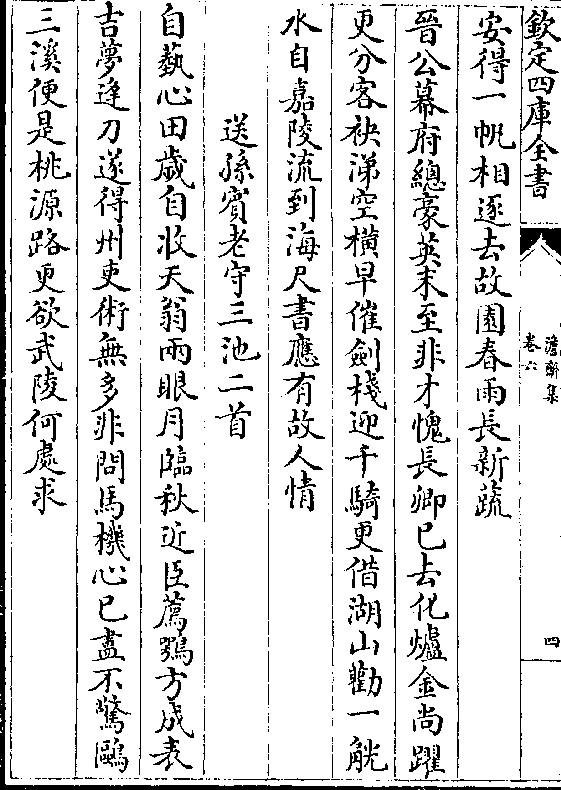 欽定四庫全書
澹齋集
卷六
四
安得一帆相逐去故園春雨長新蔬
晉公幕府總豪英末至非才愧長卿已去化爐金尚躍
更分客袂涕空橫早催劍棧迎千騎更借湖山勸一觥
水自嘉陵流到海尺書應有故人情
送孫賓老守三池二首
自蓺心田歲自收天翁兩眼月臨秋近臣薦鶚方成表
吉夢逢刀遂得州吏術無多非問馬機心已盡不驚鷗
三溪便是桃源路更欲武陵何處求